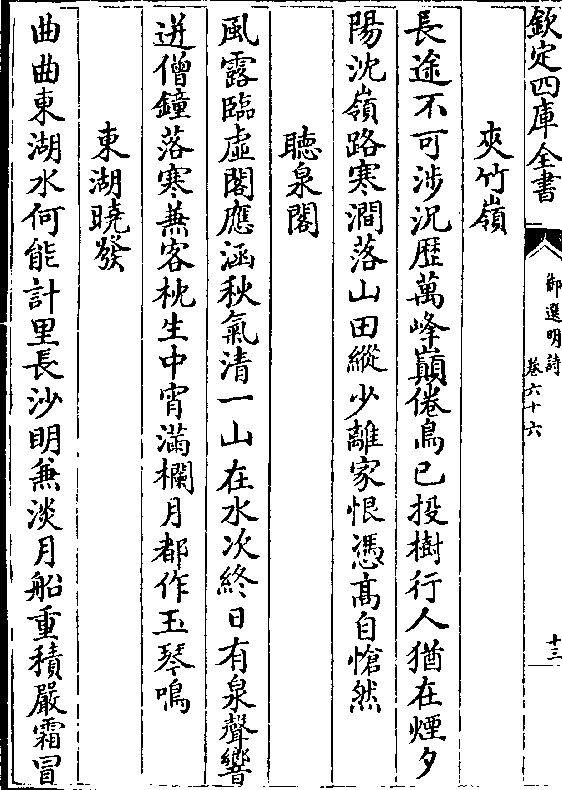 欽定四庫全書
御選明詩
卷六十六
十三
夾竹嶺
長途不可涉況歴萬峰巔倦鳥已投樹行人猶在煙夕
陽沈嶺路寒澗落山田縱少離家恨憑髙自愴然
聽泉閣
風露臨虛閣應涵秋氣清一山在水次終日有泉聲響
迸僧鐘落寒兼客枕生中宵滿欄月都作玉琴鳴
東湖曉發
曲曲東湖水何能計里長沙明兼淡月船重積嚴霜冒